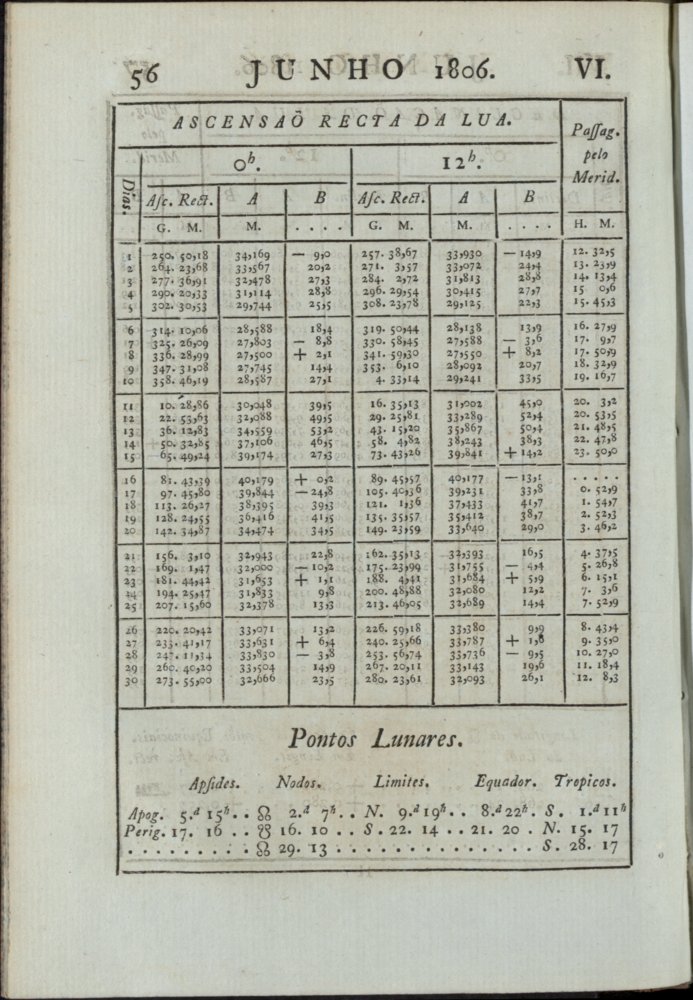 56 JUNHO 1806. VI.
ASCENSAÕ RECTA DA LUA.
Dias. 0h. 12h. Paſſag. pelo Merid.
Aſc. Rect. A B Aſc. Rect. A B
G. M. M. .... G. M. M. .... H. M.
1 250. 50,18 34,169 — 9,0 257. 38,67 33,930 — 14,9 12. 32,5
2 264. 23,68 33,567 20,2 271. 3,57 33,072 24,4 13. 23,9
3 277. 36,91 32,478 27,3 284. 2,72 31,813 28,8 14. 13,4
4 290. 20,33 31,114 28,8 296. 29,54 30,415 27,7 15 0,6
5 302. 30,53 29,744 25,5 308. 23,78 29,125 22,3 15. 45,3
6 314. 10,06 28,588 18,4 319. 50,44 28,138 13,9 16. 27,9
7 325. 26,09 27,803 — 8,8 330. 58,45 27,588 — 3,6 17. 9,7
8 336. 28,99 27,500 + 2,1 341. 59,30 27,550 + 8,2 17. 50,9
9 347. 31,08 27,745 14,4 353. 6,10 28,092 20,7 18. 32,9
10 358. 46,19 28,587 27,1 4. 33,14 29,241 33,5 19. 16,7
11 10. 28,86 30,048 39,5 16. 35,13 31,002 45,0 20. 3,2
12 22. 53,63 32,088 49,5 29. 25,81 33,289 52,4 20. 53,5
13 36. 12,83 34,559 53,2 43. 15,20 35,867 50,4 21. 48,5
14 50. 32,85 37,106 46,5 58. 4,82 38,243 38,3 22. 47,8
15 65. 49,24 39,174 27,3 73. 43,26 39,841 + 14,2 23. 50,0
16 81. 43,39 40,179 + 0,2 89. 45,57 40,177 — 13,1 .....
17 97. 45,80 39,844 — 24,8 105. 40,36 39,231 33,8 0. 52,9
18 113. 26,27 38,395 39,3 121. 1,36 37,433 41,7 1. 54,7
19 128. 24,55 36,416 41,5 135. 35,57 35,412 38,7 2. 52,3
20 142. 34,87 34,474 34,5 149. 23,59 33,640 29,0 3. 46,2
21 156. 3,10 32,943 22,8 162. 35,13 32,393 16,5 4. 37,5
22 169. 1,47 32,000 — 10,2 175. 23,99 31,755 — 4,4 5. 26,8
23 181. 44,42 31,653 + 1,1 188. 4,41 31,684 + 5,9 6. 15,1
24 194. 25,47 31,833 9,8 200. 48,88 32,080 12,2 7. 3,6
25 207. 15,60 32,378 13,3 213. 46,05 32,689 14,4 7. 52,9
26 220. 20,42 33,071 13,2 226. 59,18 33,380 9,9 8. 43,4
27 233. 41,17 33,631 + 6,4 240. 25,66 33,787 + 1,8 9. 35,0
28 247. 11,34 33,830 — 3,8 253. 56,74 33,736 — 9,5 10. 27,0
29 260. 40,20 33,504 14,9 267. 20,11 33,143 19,6 11. 18,4
30 273. 55,00 32,666 23,5 280. 23,61 32,093 26,1 12. 8,3
Pontos Lunares.
Apſides. Nodos. Limites. Equador. Tropicos.
Apog. 5.d 15h .. ☊ 2.d 7h .. N. 9.d 19h .. 8.d 22h. S. 1.d 11h
Perig. 17. 16 .. ☋ 16. 10 .. S. 22. 14 .. 21. 20 . N. 15. 17
......... ☊ 29. 13 ............... S. 28. 17